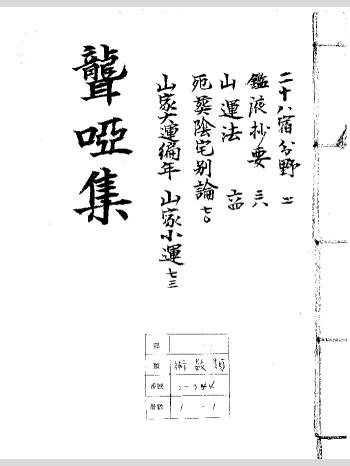 二十八宿分野 十一
鑑液抄要 三八
山運法 六四
死葬陰宅別論 七〇
山家大運編年 山家小運 七三
聾啞集
部
類 術數類
番號 2-344
冊數 1-1